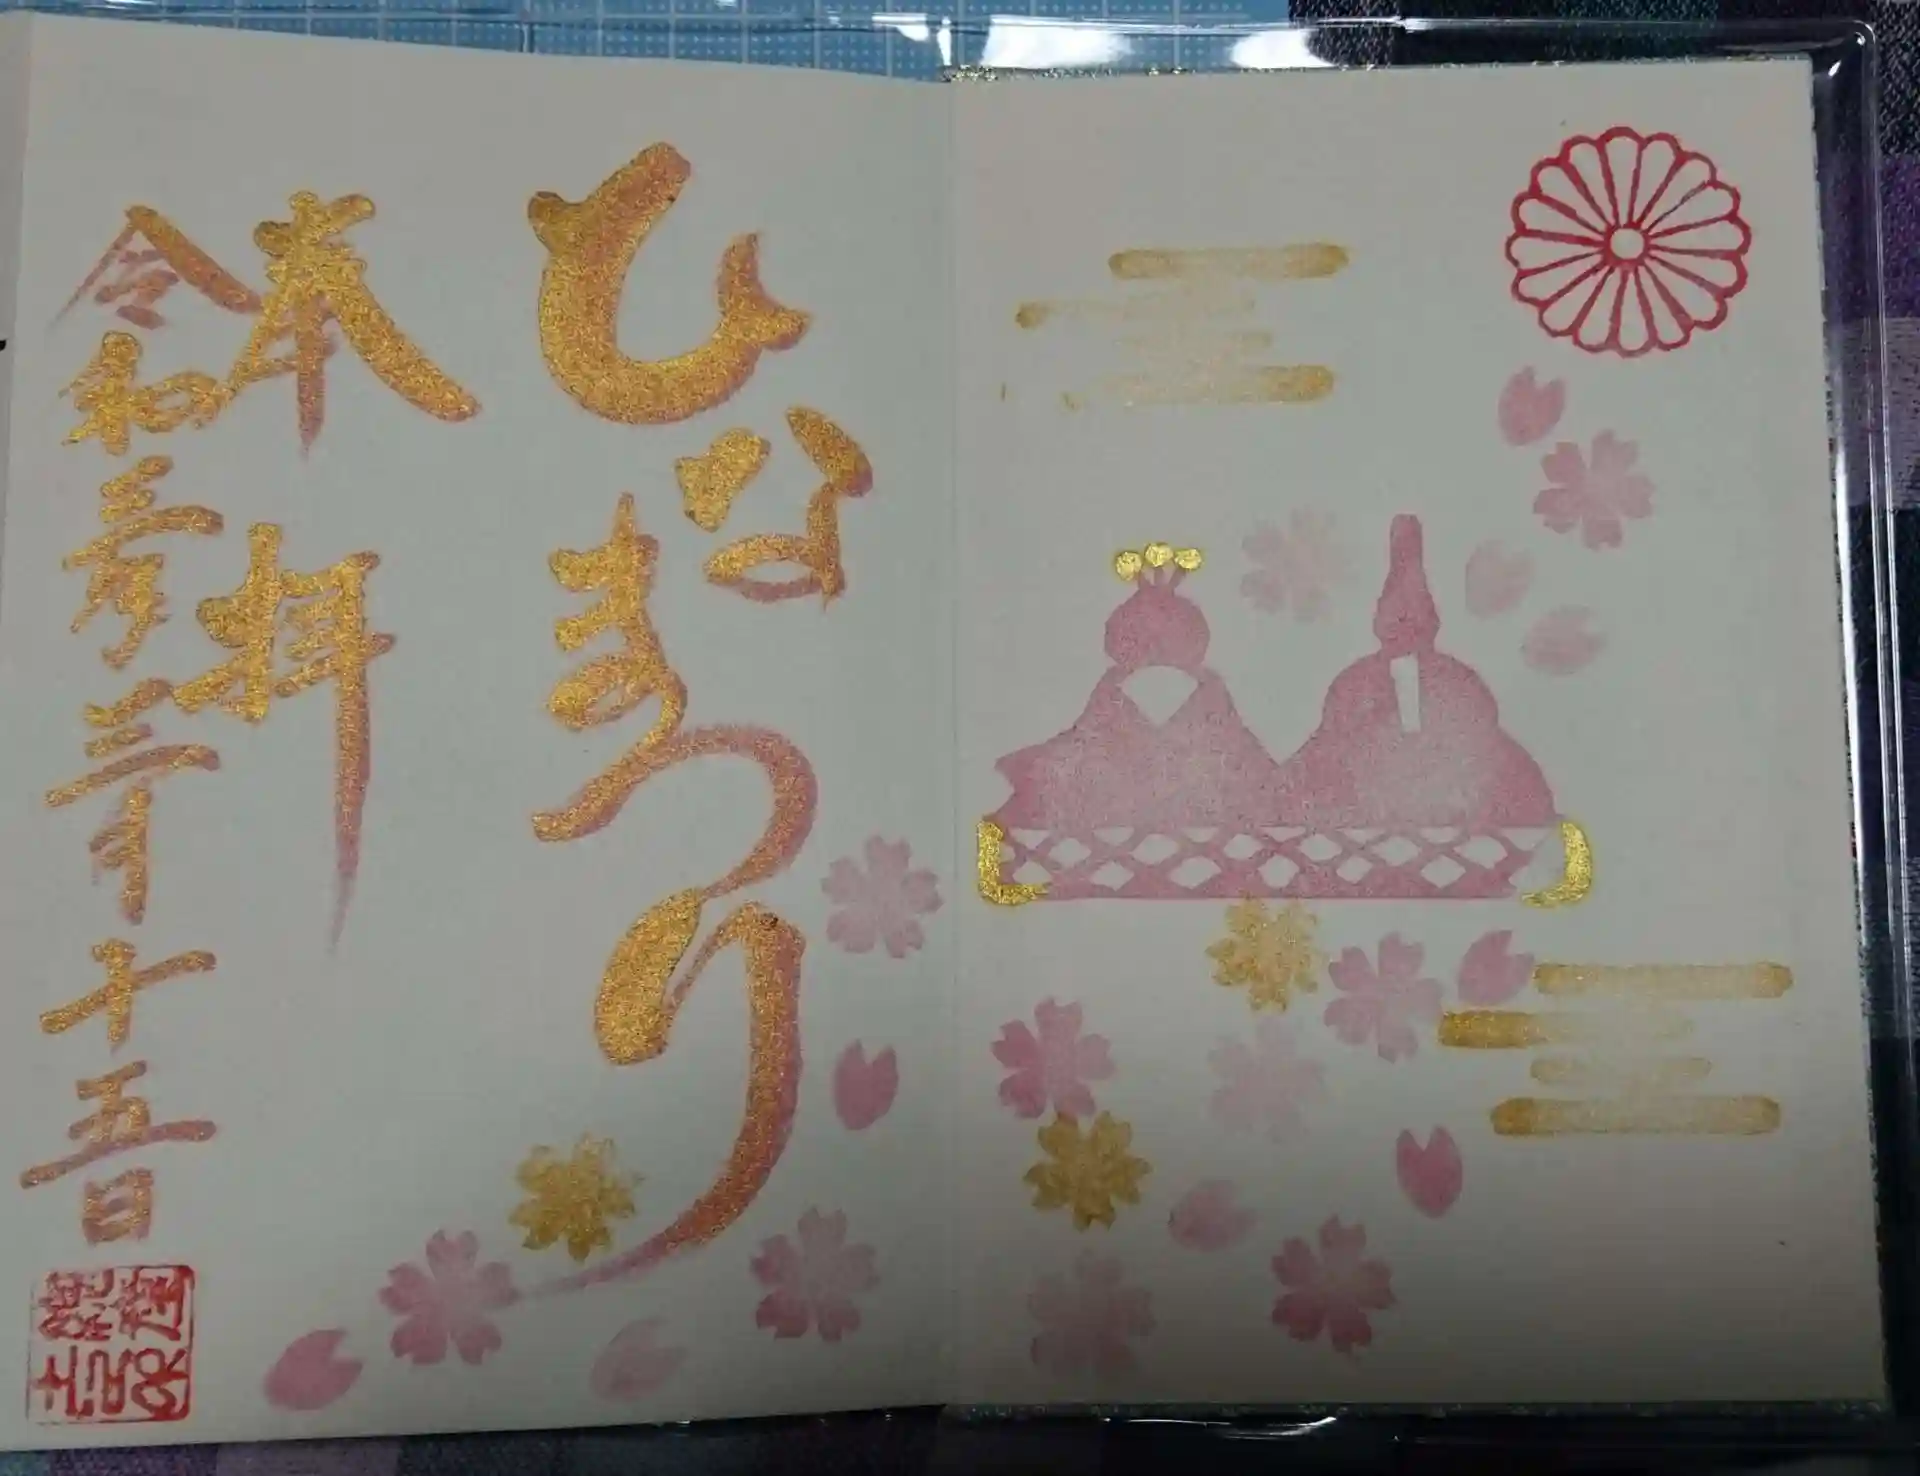 ひなまつり
奉拝
令和三年三月十五日